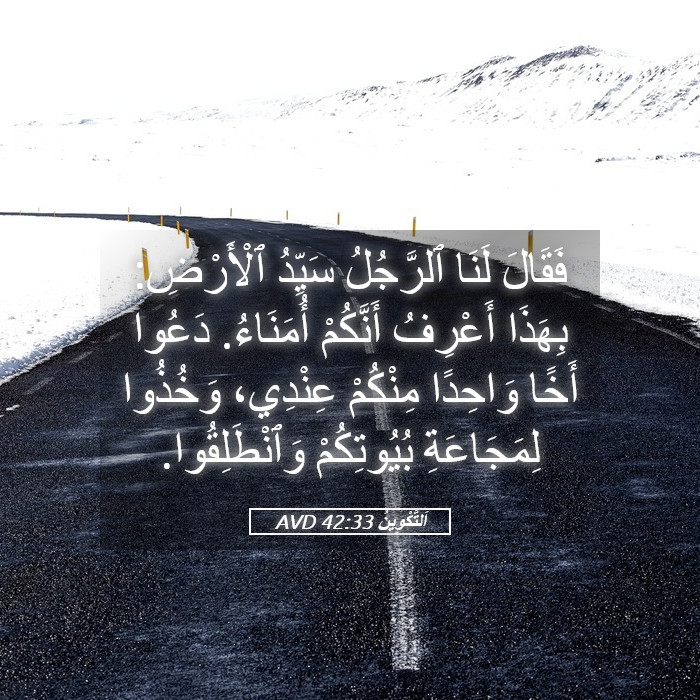 فَقَالَ لَنَا ٱلرَّجُلُ سَيِّدُ ٱلْأَرْضِ:
بِهَذَا أَعْرِفُ أَنَّكُمْ أُمَنَاءُ. دَعُوا
أَخًا وَاحِدًا مِنْكُمْ عِنْدِي، وَخُذُوا
لِمَجَاعَةِ بُيُوتِكُمْ وَٱنْطَلِقُوا.
اَلتَّكْوِينُ 42:33 AVD